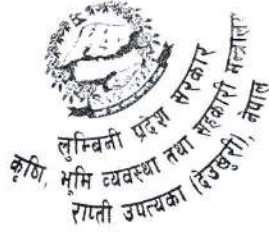 लुम्बिनी प्रदेश सरकार
कृषि, भूमि व्यवस्था तथा सहकारी मन्त्रालय
राप्ती उपत्यका (देउखुरी), नेपाल